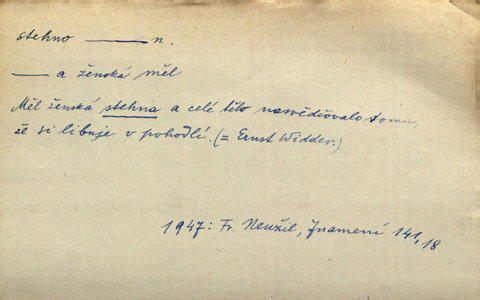 stehno ——— n.
—— a ženská měl
Měl ženská stehna a celé tělo nasvědčovalo tomu,
že si libuje v pohodlí. (= Ernst Widder.)
1947: Fr. Neužil, Znamení 141,18